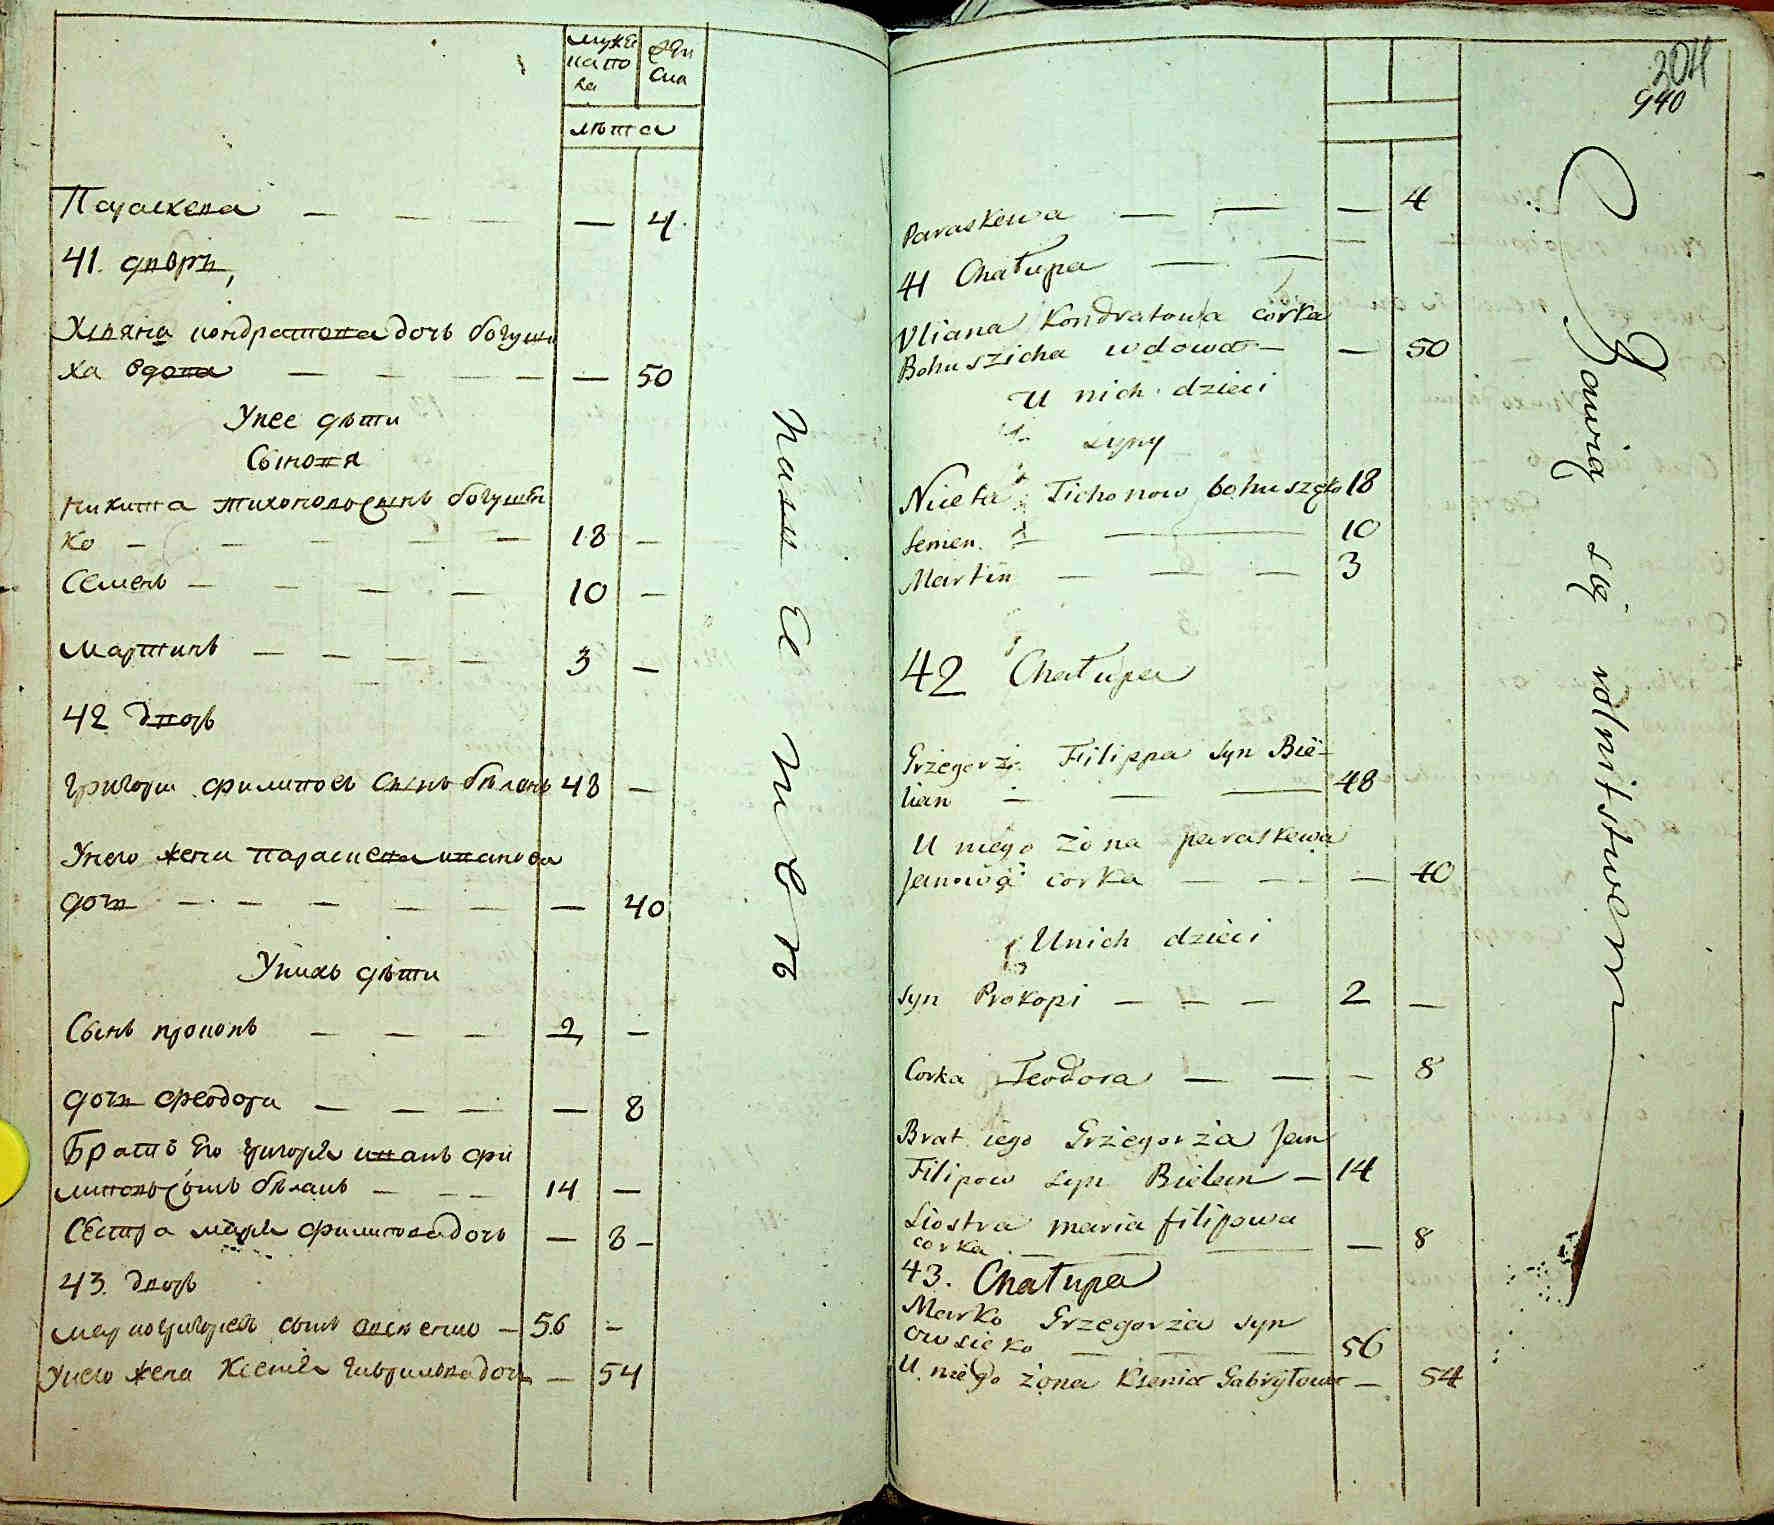 мужес
ка по
ла
жен
ска
лѣта
Параскева — — — — 4
41. дворъ
Ульяна кондратова дочь богуши
ха вдова — — — — — 50
У нее дѣти
Сыновя
Никита тихоновъ сынъ богушен
ко — — — — — 18 —
Семенъ — — — — 10 —
Мартинъ — — — — 3 —
42 дворъ
Григори филиповъ сынъ бѣланъ 48 —
У него жена параскева иванова
дочь — — — — — — 40
У нихъ дѣти
Сынъ прокопъ — — — 2 —
дочь феодора — — — — 8
Братъ его григория иванъ фи
липовъ сынъ бѣланъ — — — 14 —
Сестра мария филипова дочь — 8 —
43. дворъ
марко григориевъ сынъ овсиенко — 56 —
У него жена Ксения гаврилова дочь — 54
204
940
Paraskewa — — — 4
41 Chałupa — —
Uliana Kondratowa corka
Bohuszicha wdowa — — 50
U nich dzieci
syny
Niceta Tichonow bohuszęko 18
Semen — — 10
Martin — — — 3
42 Chałupa
Grzegorz Filippa syn Bie-
lian — — — 48
U niego żona paraskewa
Janowa corka — — — 40
U nich dzieci
syn Prokopi — — — 2 —
Corka Teodora — — — 8
Brat iego Grzegorża Jan
Filipow syn Bielan — 14
Siostra maria filipowa
corka — — — — 8
43. Chałupa
Marko Grzegorża syn
owsieko — — — 56
U niego żona Ksenia Gabryłowa — 54
Bawią się rolnitstwem